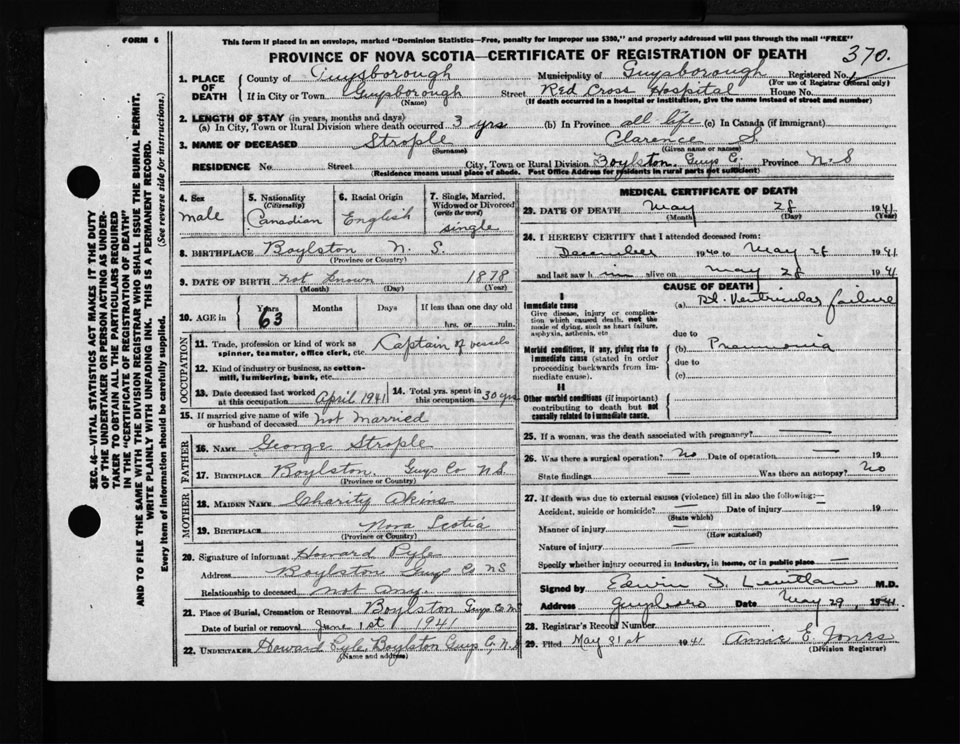 FORM 6
This form if placed in an envelope, marked "Dominion Statistics—Free, penalty for improper use $300," and properly addressed will pass through the mail "FREE"
PROVINCE OF NOVA SCOTIA—CERTIFICATE OF REGISTRATION OF DEATH
370.
1. PLACE OF DEATH
County of Guysborough Municipality of Guysborough Registered No.
(For use of Registrar General only)
If in City or Town Guysborough Street Red Cross Hospital House No.
(Name) (If death occurred in a hospital or institution, give the name instead of street and number)
2. LENGTH OF STAY (in years, months and days)
(a) In City, Town or Rural Division where death occurred 3 yrs (b) In Province all life (c) In Canada (if immigrant)
3. NAME OF DECEASED Strople Clarence S.
(Surname) (Given name or names)
RESIDENCE No Street City, Town or Rural Division Boylston. Guys C. Province N.S
(Residence means usual place of abode. Post Office Address for residents in rural parts not sufficient)
4. Sex male
5. Nationality (Citizenship) Canadian
6. Racial Origin English
7. Single, Married, Widowed or Divorced (write the word) single
8. BIRTHPLACE Boylston N. S.
(Province or Country)
9. DATE OF BIRTH not known 1878
(Month) (Day) (Year)
10. AGE in Years 63 Months Days If less than one day old hrs. or min.
OCCUPATION
11. Trade, profession or kind of work as spinner, teamster, office clerk, etc. Captain of vessels
12. Kind of industry or business, as cotton-mill, lumbering, bank, etc.
13. Date deceased last worked at this occupation April 1941
14. Total yrs. spent in this occupation 30 yrs
15. If married give name of wife or husband of deceased not Married
FATHER
16. NAME George Strople
17. BIRTHPLACE Boylston. Guys Co N.S.
(Province or Country)
MOTHER
18. MAIDEN NAME Charity Akins
19. BIRTHPLACE Nova Scotia
(Province or Country)
20. Signature of informant Howard Pyle
Address Boylston Guys Co NS
Relationship to deceased not any.
21. Place of Burial, Cremation or Removal Boylston Guys Co
Date of burial or removal June 1st 1941
22. UNDERTAKER Howard Pyle, Boylston Guys C. N.S
(Name and address)
MEDICAL CERTIFICATE OF DEATH
23. DATE OF DEATH May 28 1941
(Month) (Day) (Year)
24. I HEREBY CERTIFY that I attended deceased from:
December 1940 to May 28 1941
and last saw him alive on May 28 1941
CAUSE OF DEATH
I
Immediate cause
Give disease, injury or complication which caused death, not the mode of dying, such as heart failure, asphyxia, asthenia, etc
(a) Ventricular failure
due to
Morbid conditions, if any, giving rise to immediate cause (stated in order proceeding backwards from immediate cause).
(b) Pneumonia
due to
(c)
II
Other morbid conditions (if important) contributing to death but not causally related to immediate cause.
25. If a woman, was the death associated with pregnancy?
26. Was there a surgical operation? No Date of operation 19
State findings Was there an autopsy? No
27. If death was due to external causes (violence) fill in also the following:—
Accident, suicide or homicide? Date of injury 19
(State which)
Manner of injury
(How sustained)
Nature of injury
Specify whether injury occurred in industry, in home, or in public place
Signed by Edwin M.D.
Address Guysboro Date May 29, 1941
28. Registrar's Record Number
29. Filed May 31st 1941 Annie E. Jones
(Division Registrar)
SEC. 46—VITAL STATISTICS ACT MAKES IT THE DUTY
OF THE UNDERTAKER OR PERSON ACTING AS UNDER-
TAKER TO OBTAIN ALL THE PARTICULARS REQUIRED
IN THE "CERTIFICATE OF REGISTRATION OF DEATH"
AND TO FILE THE SAME WITH THE DIVISION REGISTRAR WHO SHALL ISSUE THE BURIAL PERMIT.
WRITE PLAINLY WITH UNFADING INK. THIS IS A PERMANENT RECORD.
Every item of information should be carefully supplied. (See reverse side for instructions.)